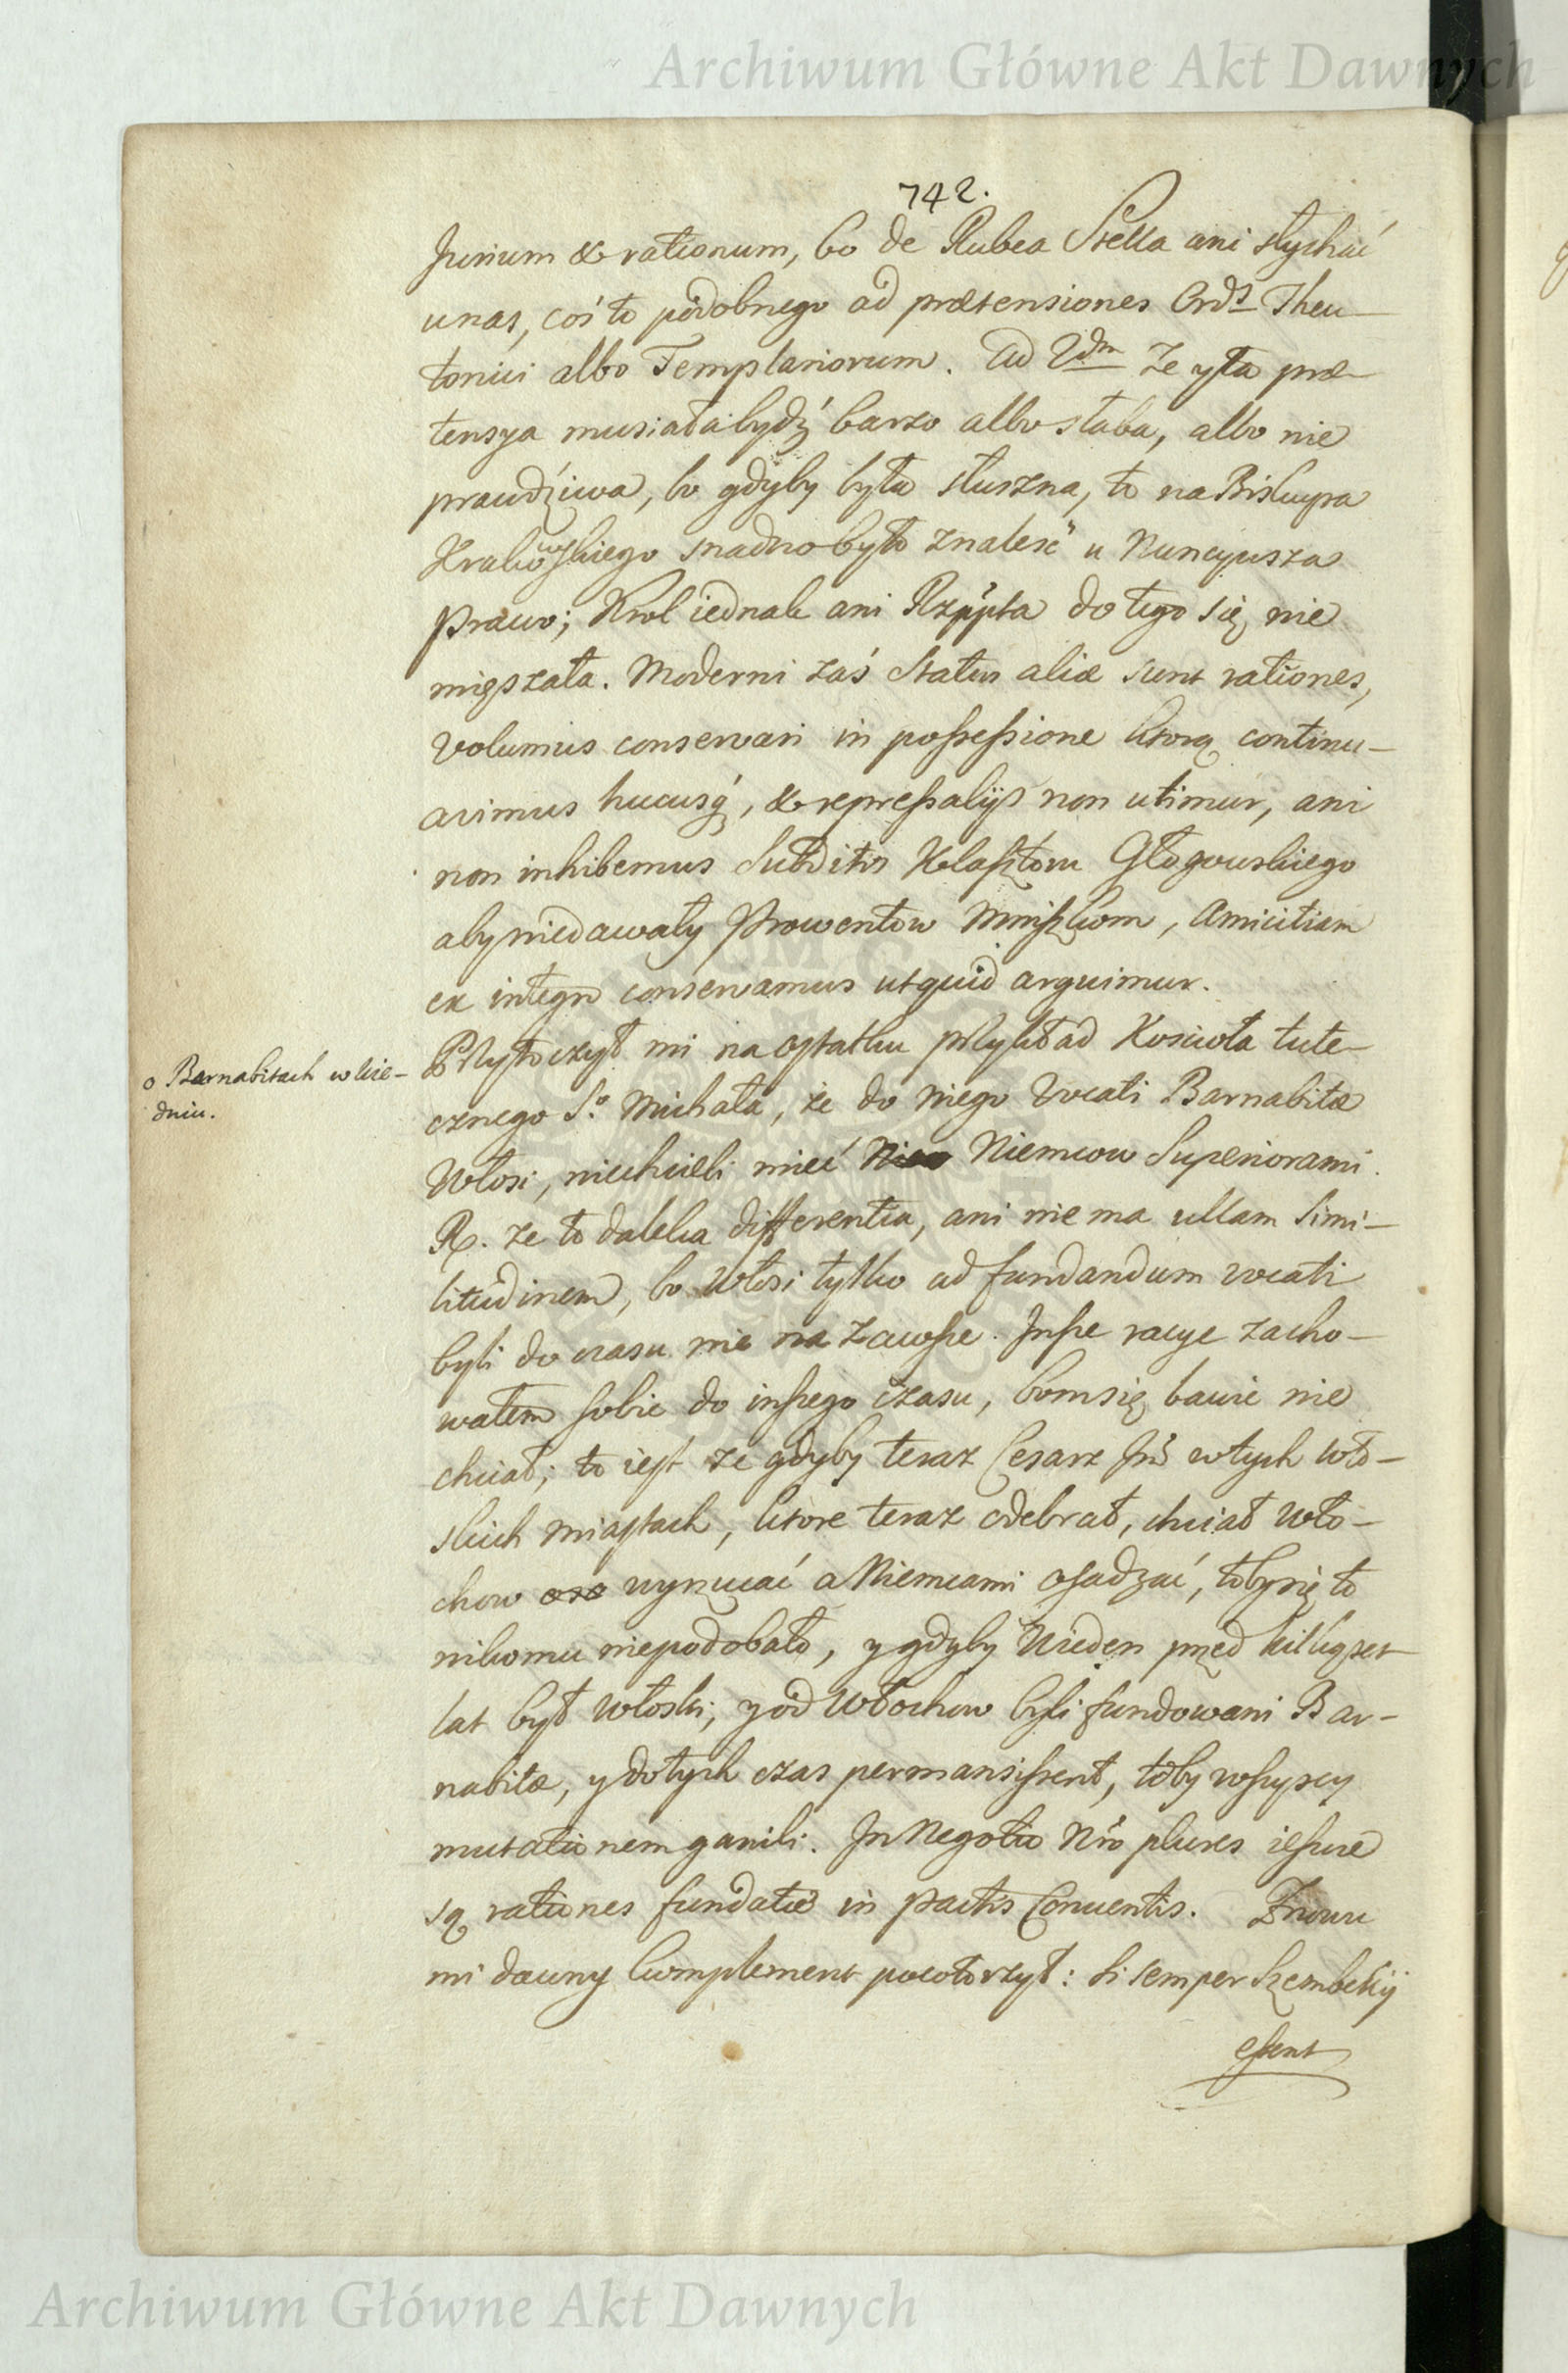 Archiwum Główne Akt Dawnych
742.
Jurium & rationum, bo de Rubea Stella ani słychać
unas, coś to podobnego ad prætensiones Ord.s Theu-
tonici albo Templariorum. Ad 2dm Ze yta præ-
tensya musiała bydź barzo albo słaba, albo nie
prawdziwa, bo gdyby była słuszna, to na Biskupa
Krakowskiego snadno było znaleść u Nuncyusza
Prawo; Krol iednak ani Rzppta do tego się nie
mięszała. Moderni zaś Status aliæ sunt rationes,
volumus conservari in possessione ktorą continu-
avimus hucusq, & repressalijs non utimur, ani
non inhibemus Subditis Klasztoru Głogowskiego
aby niedawały Prowentow Mniszkom, Amicitiam
ex integro conservamus utquid arguimur.
o Barnabitach w Wie-
dniu.
Przytoczył mi na ostatku przykład Kościoła tute-
cznego S.o Michała, że do niego Vocati Barnabitæ
Włosi, niechcieli mieć Niemcow Superiorami.
R. ze to daleka differentia, ani nie ma ullam simi-
litudinem, bo Włosi tylko ad fundandum vocati
byli do czasu nie na zawsze. Insze racye zacho-
wałem sobie do inszego czasu, bom się bawic nie
chciał; to iest ze gdyby teraz Cesarz Jmć w tych Wło-
skich Miastach, ktore teraz odebrał, chciał Wło-
chow wyrzucać a Niemcami osadzać, toby się to
nikomu niepodobało, y gdyby Wieden przed kilkąset
lat był Włoski, y od Włochow byli fundowani Bar-
nabitæ, y do tych czas permansissent, toby wszyscy
mutationem ganili. In Negotio Nro plures ieszcze
są rationes fundatæ in Pactis Conventis. Znowu
mi dawny komplement powtorzył: si semper Szembekij
essent
Archiwum Główne Akt Dawnych